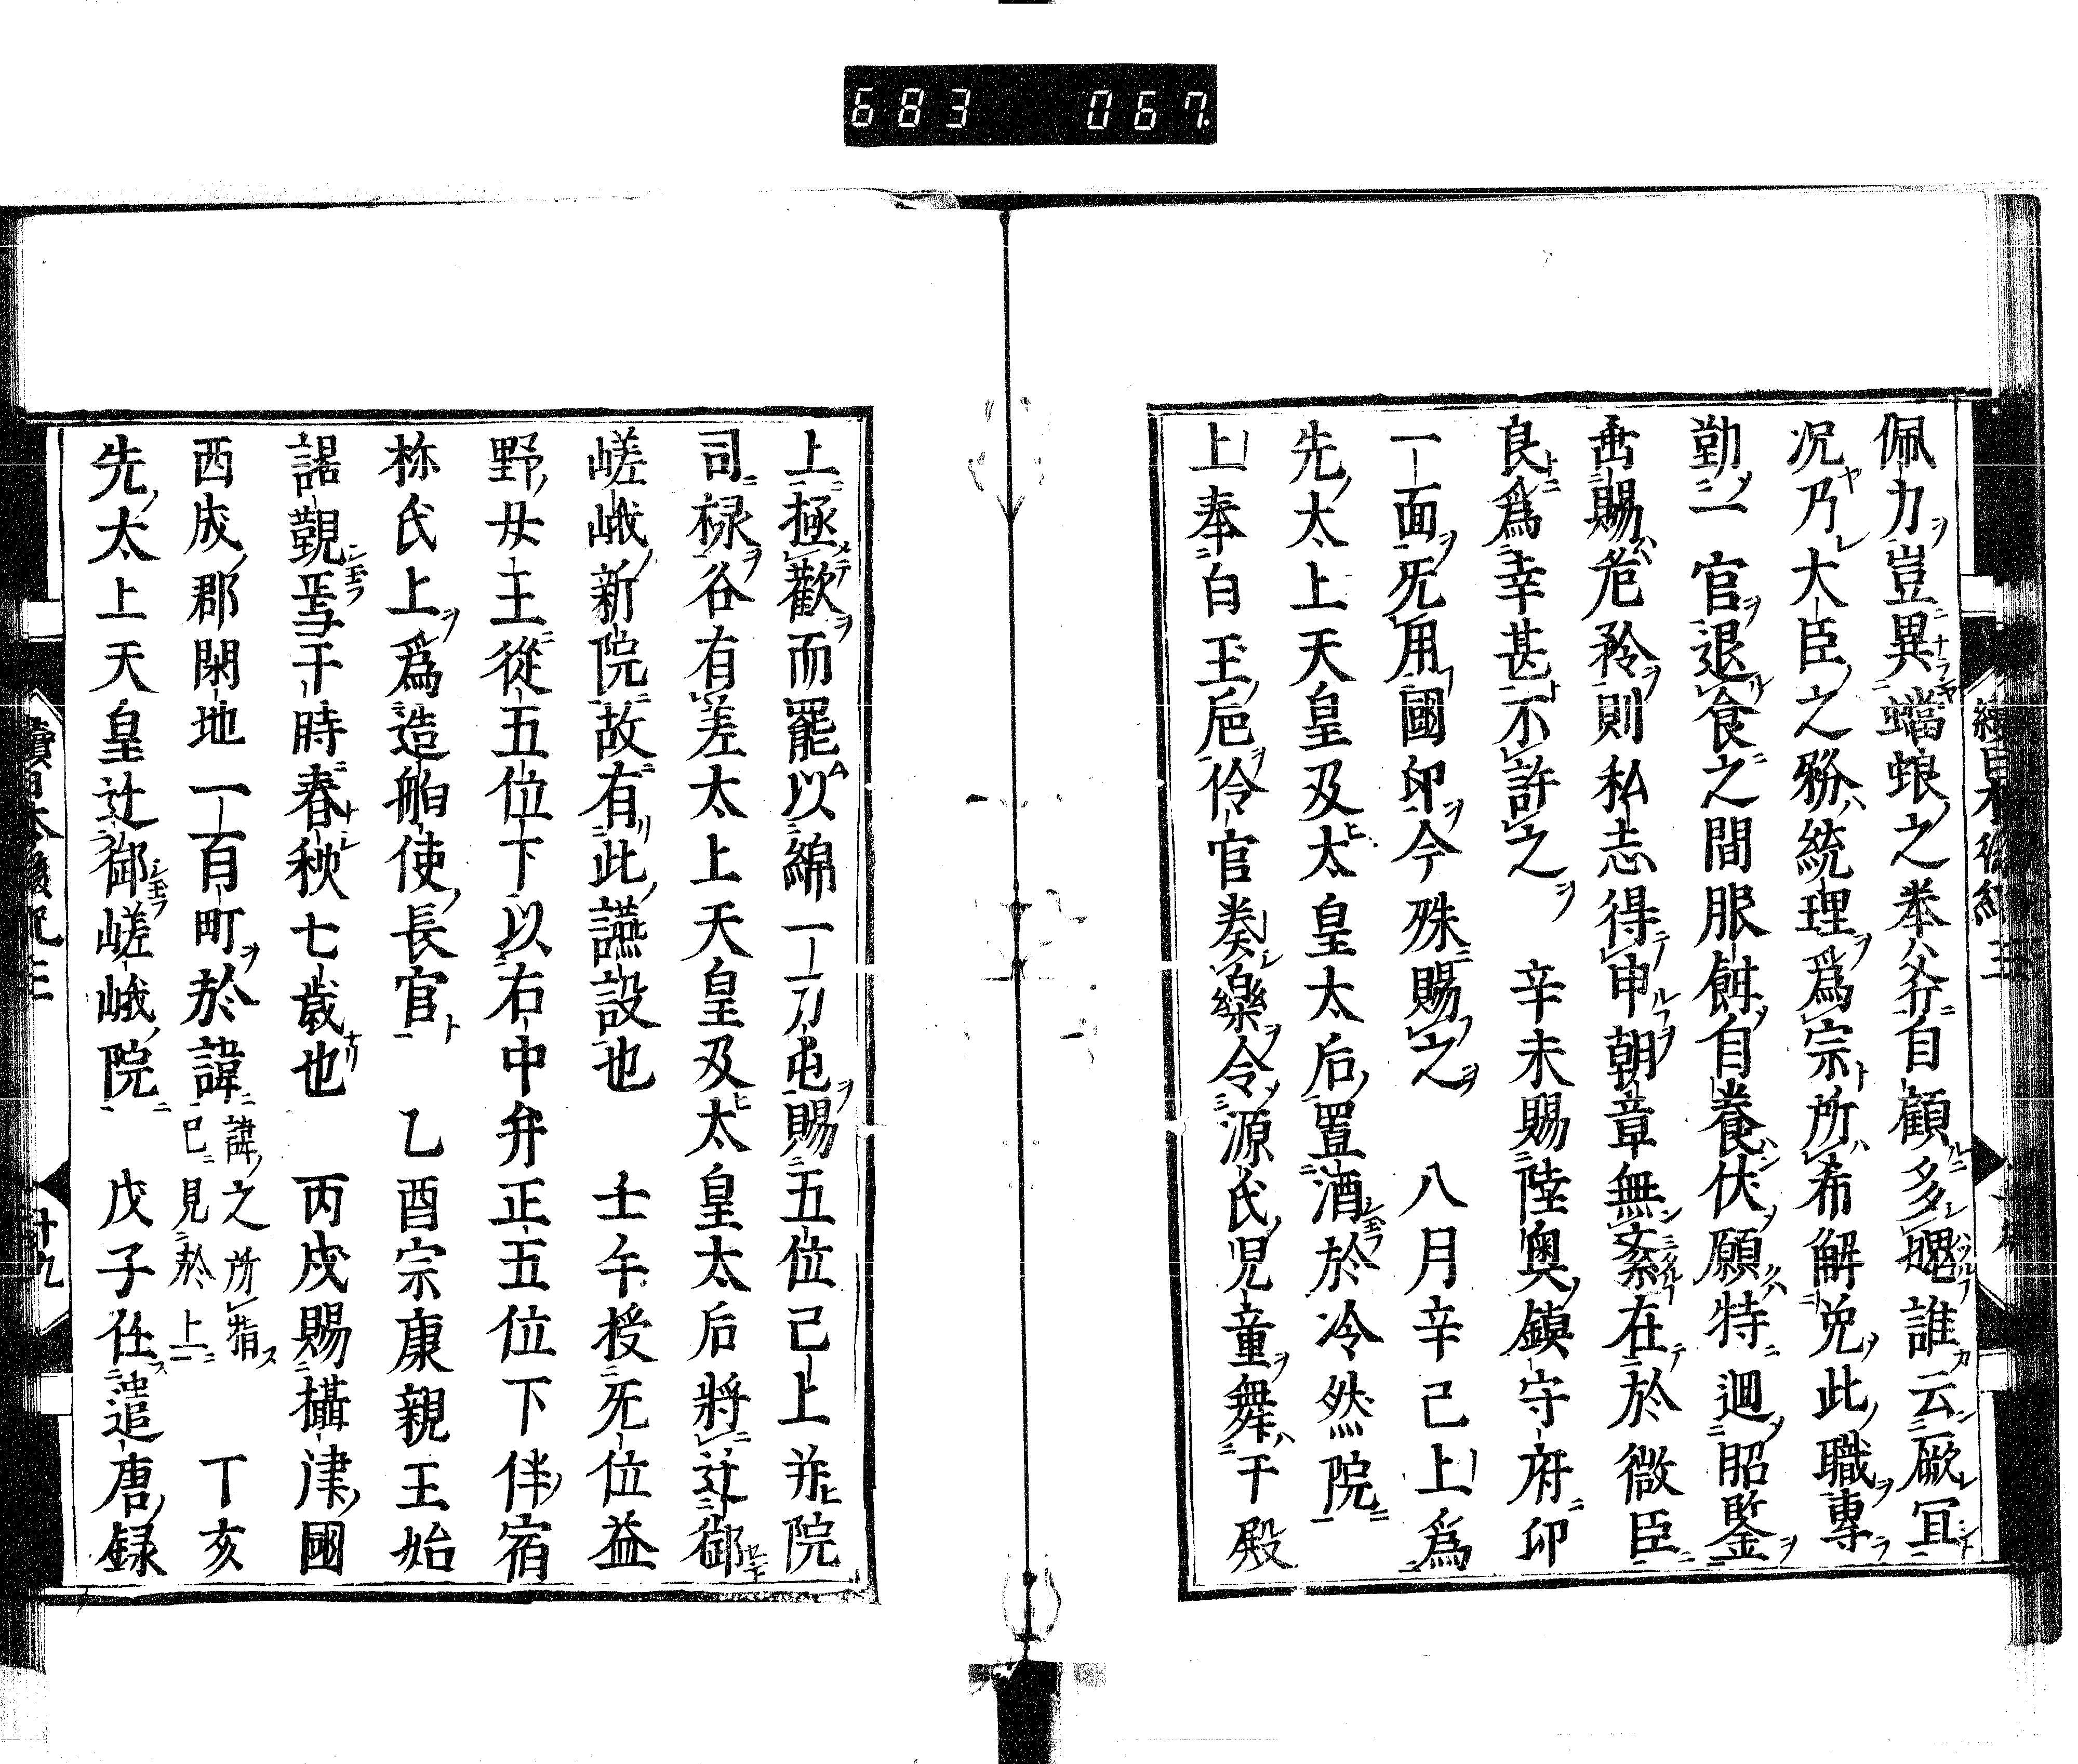 683 067
佩力豈異蟷蜋之拳公斧自顧多媿誰云厥冝
况乃大臣之務統理爲宗所希解免此職專
勤一官退食之間服餌自養伏願特迴昭鑒
垂賜危矜則私志得申朝章無紊在於微臣
良爲幸甚不許之 辛未賜陸奥鎮守府印
一面元用國印今殊賜之 八月辛己上爲
先太上天皇及太皇太后置酒於冷然院
上奉自玉巵伶官奏樂令源氏児童舞于殿
上極歡而罷以綿一刀屯賜五位己上并院
司禄各有差太上天皇及太皇太后將迁御
嵯峨新院故有此讌設也 壬午授无位益
野女王從五位下以右中弁正五位下伴宿
祢氏上爲造舶使長官 乙酉宗康親王始
謁覲焉于時春秋七歳也 丙戍賜攝津國
西成郡閑地一百町於諱諱之所指已見於上 丁亥
先太上天皇迁御嵯峨院 戊子任遣唐録
續日本後紀三 十九